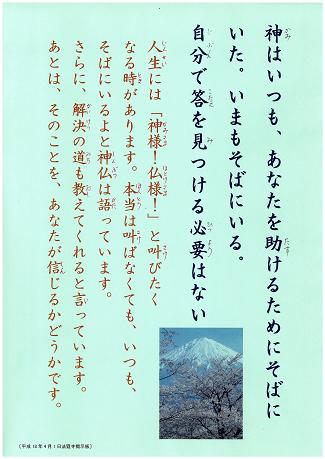 神はいつも、あなたを助けるためにそばに
いた。いまもそばにいる。
自分で答を見つける必要はない
人生には「神様！仏様！」と叫びたく
なる時があります。本当は叫ばなくても、いつも、
そばにいるよと神仏は語っています。
さらに、解決の道も教えてくれると言っています。
あとは、そのことを、あなたが信じるかどうかです。
（平成18年4月1日法覚寺掲示板）